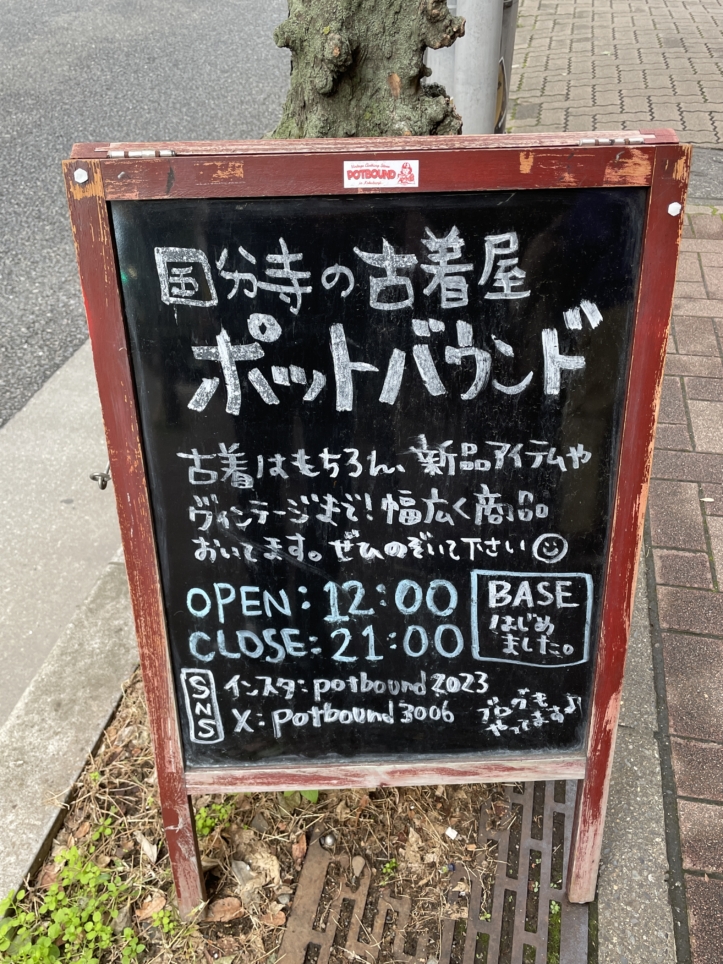 POTBOUND
国分寺の古着屋
ポットバウンド
古着はもちろん、新品アイテムや
ヴィンテージまで!幅広く商品
おいてます。ぜひのぞいて下さい
OPEN:12:00
CLOSE:21:00
BASE
はじめ
ました。
SNS
インスタ:potbound2023
X:potbound3006
ブログも
やってます♪